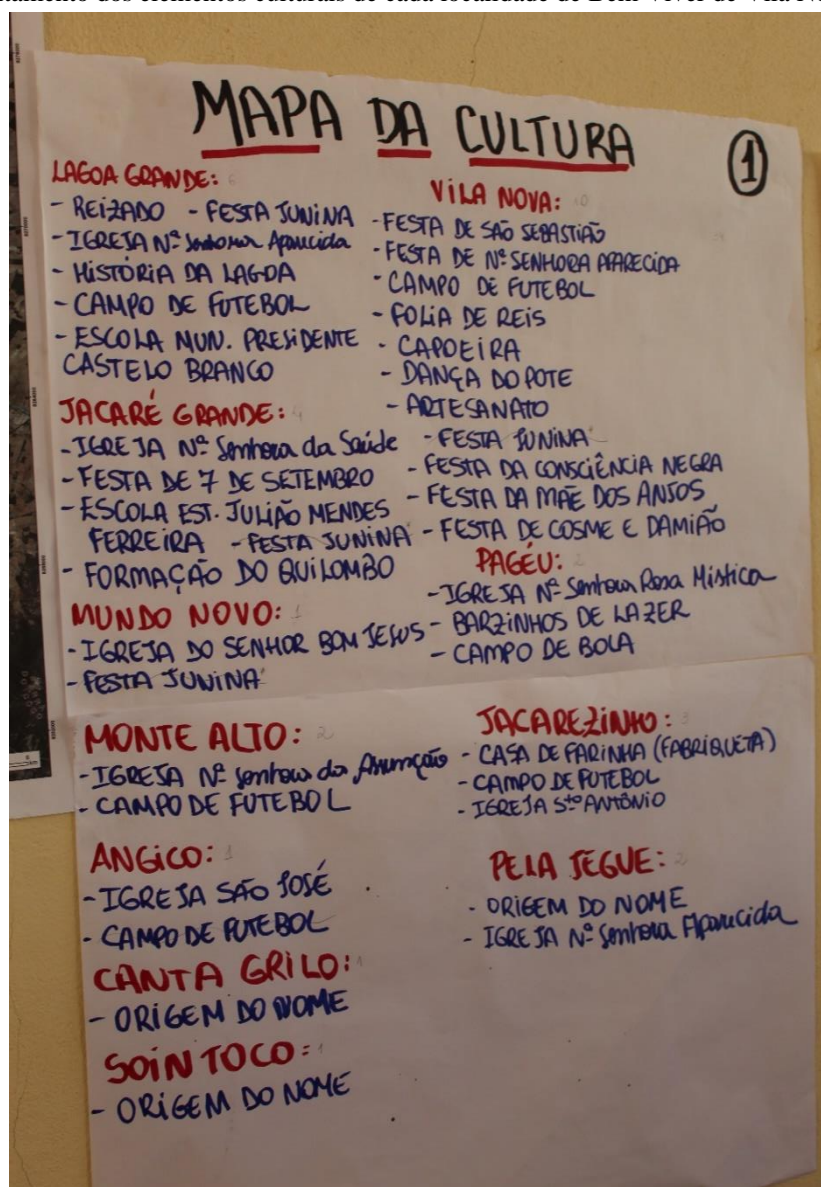 tamento dos elementos culturais de cada localidade de Bem Viver de Vila N
MAPA DA CULTURA
1
LAGOA GRANDE: 6
- REIZADO - FESTA JUNINA
- IGREJA Nª Senhora Aparecida
- HISTÓRIA DA LAGOA
- CAMPO DE FUTEBOL
- ESCOLA MUN. PRESIDENTE
CASTELO BRANCO
JACARÉ GRANDE: 4
- IGREJA Nª Senhora da Saúde
- FESTA DE 7 DE SETEMBRO
- ESCOLA EST. JULIÃO MENDES
FERREIRA - FESTA JUNINA
- FORMAÇÃO DO QUILOMBO
MUNDO NOVO: 1
- IGREJA DO SENHOR BOM JESUS
- FESTA JUNINA
VILA NOVA: 10
- FESTA DE SÃO SEBASTIÃO
- FESTA DE Nª SENHORA APARECIDA
- CAMPO DE FUTEBOL
- FOLIA DE REIS
- CAPOEIRA
- DANÇA DO POTE
- ARTESANATO
- FESTA JUNINA
- FESTA DA CONSCIÊNCIA NEGRA
- FESTA DA MÃE DOS ANJOS
- FESTA DE COSME E DAMIÃO
PAGÉU: 2
- IGREJA Nª Senhora Rosa Mistica
- BARZINHOS DE LAZER
- CAMPO DE BOLA
MONTE ALTO: 2
- IGREJA Nª Senhora da Assunção
- CAMPO DE FUTEBOL
ANGICO: 1
- IGREJA SÃO JOSÉ
- CAMPO DE FUTEBOL
CANTA GRILO: 1
- ORIGEM DO NOME
SOIN TOCO: 1
- ORIGEM DO NOME
JACAREZINHO: 3
- CASA DE FARINHA (FABRIQUETA)
- CAMPO DE FUTEBOL
- IGREJA Sto ANTÔNIO
PELA JEGUE: 2
- ORIGEM DO NOME
- IGREJA Nª Senhora Aparecida